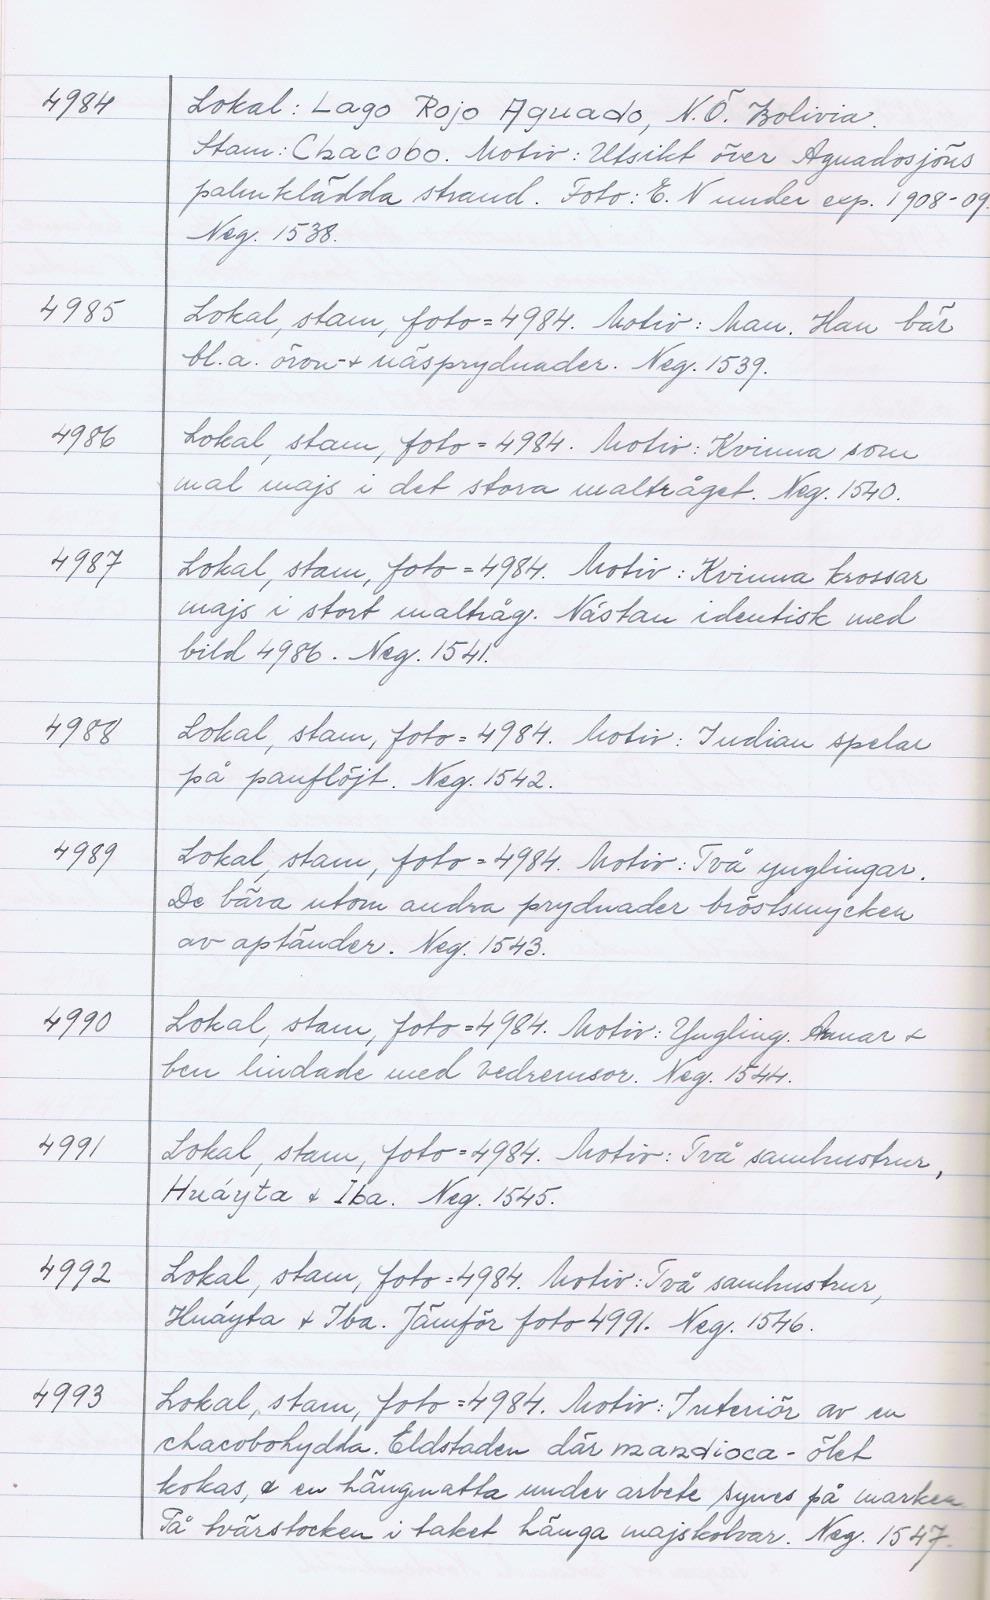 4984 Lokal: Lago Rojo Aguado, N.Ö. Bolivia.
Stam: Chacobo. Motiv: Utsikt över Aguadosjöns
palmklädda strand. Foto: E. N under exp. 1908-09.
Neg. 1538.
4985 Lokal, stam, foto = 4984. Motiv: Man. Han bär
bl.a. öron- & näsprydnader. Neg. 1539.
4986 Lokal, stam, foto = 4984. Motiv: Kvinna som
mal majs i det stora maltråget. Neg. 1540.
4987 Lokal, stam, foto = 4984. Motiv: Kvinna krossar
majs i stort maltråg. Nästan identisk med
bild 4986. Neg. 1541.
4988 Lokal, stam, foto = 4984. Motiv: Indian spelar
på panflöjt. Neg. 1542.
4989 Lokal, stam, foto = 4984. Motiv: Två ynglingar.
De bära utom andra prydnader bröstsmycken
av aptänder. Neg. 1543.
4990 Lokal, stam, foto = 4984. Motiv: Yngling. Armar &
ben lindade med bedremsor. Neg. 1544.
4991 Lokal, stam, foto = 4984. Motiv: Två samhustrur,
Huáyta & Iba. Neg. 1545.
4992 Lokal, stam, foto = 4984. Motiv: Två samhustrur,
Huáyta & Iba. Jämför foto 4991. Neg. 1546.
4993 Lokal, stam, foto = 4984. Motiv: Interiör av en
chacobohydda. Eldstaden där mandioca-ölet
kokas, & en hängmatta under arbete synes på marken.
På tvärstocken i taket hänga majskolvar. Neg. 1547.